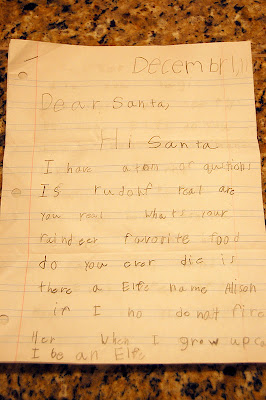 Decembr 1,
Dear Santa,
Hi Santa
I have aton of qustions
Is rudolf real are
you real whats your
raindeer favorite food
do you ever die is
there a Elfe name Alison
if I no do not fire
Her When I grow up can
I be an Elfe